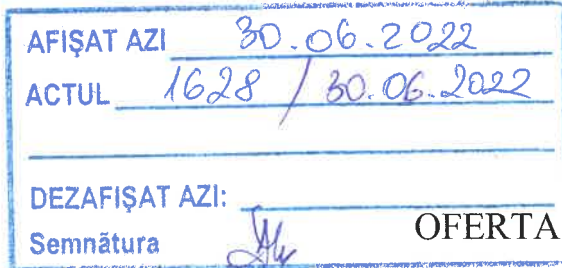 AFIŞAT AZI 30.06.2022
ACTUL 1628 / 30.06.2022
DEZAFIŞAT AZI:
Semnãtura
OFERTA